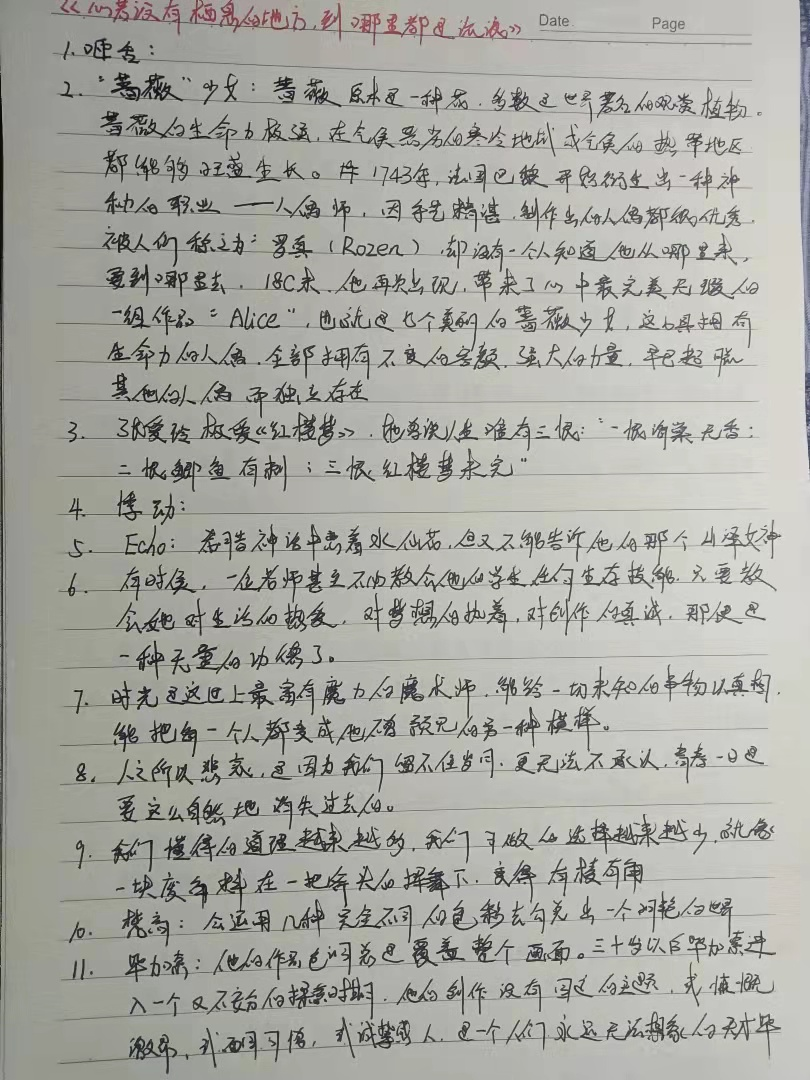 《心若没有栖息的地方，到哪里都是流浪》 Date. Page
1. 咂舌：
2. "蔷薇"少女：蔷薇原本是一种花，多数是世界著名的观赏植物。
蔷薇的生命力极强，在气候恶劣的寒冷地域或气候的热带地区
都能够旺盛生长。1743年，法国巴黎开始衍生出一种神
秘的职业——人偶师，因手艺精湛，制作出的人偶都很优秀，
被人们称之为"罗真（Rozen），却没有一个人知道他从哪里来，
要到哪里去。18C末，他再次出现，带来了心中最完美无瑕的
一组作品"Alice"，也就是七个美丽的蔷薇少女，这七具拥有
生命力的人偶，全部拥有不变的容颜，强大的力量，早已超脱
其他的人偶而独立存在
3. 张爱玲极爱《红楼梦》，她曾说人生唯有三恨："一恨海棠无香；
二恨鲥鱼有刺；三恨红楼梦未完"
4. 悸动：
5. Echo：希腊神话中恋着水仙花，但又不能告诉他的那个山泽女神
6. 有时候，一位老师甚至不必教会他的学生任何生存技能，只要教
会她对生活的热爱，对梦想的执着，对创作的真诚，那便是
一种无量的功德了。
7. 时光是这世上最富有魔力的魔术师，能给一切未知的事物以真相，
能把每一个人都变成他不曾预见的另一种模样。
8. 人之所以悲哀，是因为我们留不住岁月，更无法不承认，青春一日是
要这么自然地消失过去的。
9. 我们懂得的道理越来越多，我们可做的选择越来越少，就像
一块废料在一把斧头的挥舞下，变得有棱有角
10. 梵高：会运用几种完全不同的色彩去勾兑出一个明艳的世界
11. 毕加索：他的作品色调总是覆盖整个画面。三十岁以后毕加索进
入一个又不安的探索时期，他的创作没有固定的主题，或慷慨
激昂，或，或人，是一个人们永远无法想象的天才毕